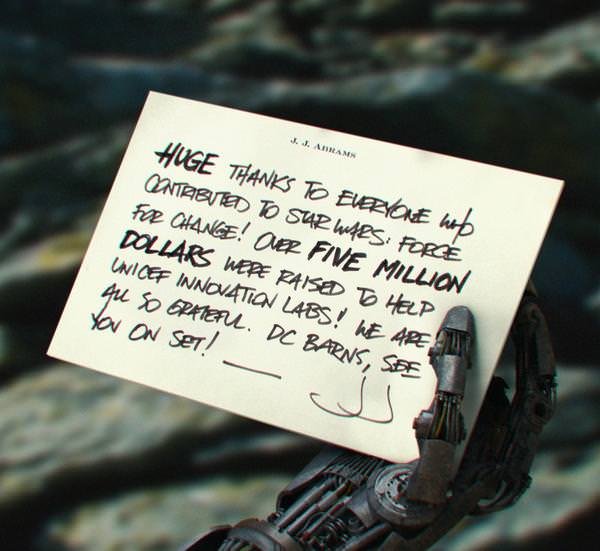 J. J. ABRAMS
HUGE THANKS TO EVERYONE WHO
CONTRIBUTED TO STAR WARS: FORCE
FOR CHANGE! OVER FIVE MILLION
DOLLARS WERE RAISED TO HELP
UNICEF INNOVATION LABS! WE ARE
ALL SO GRATEFUL. DC BARNS, SEE
YOU ON SET! —
JJ